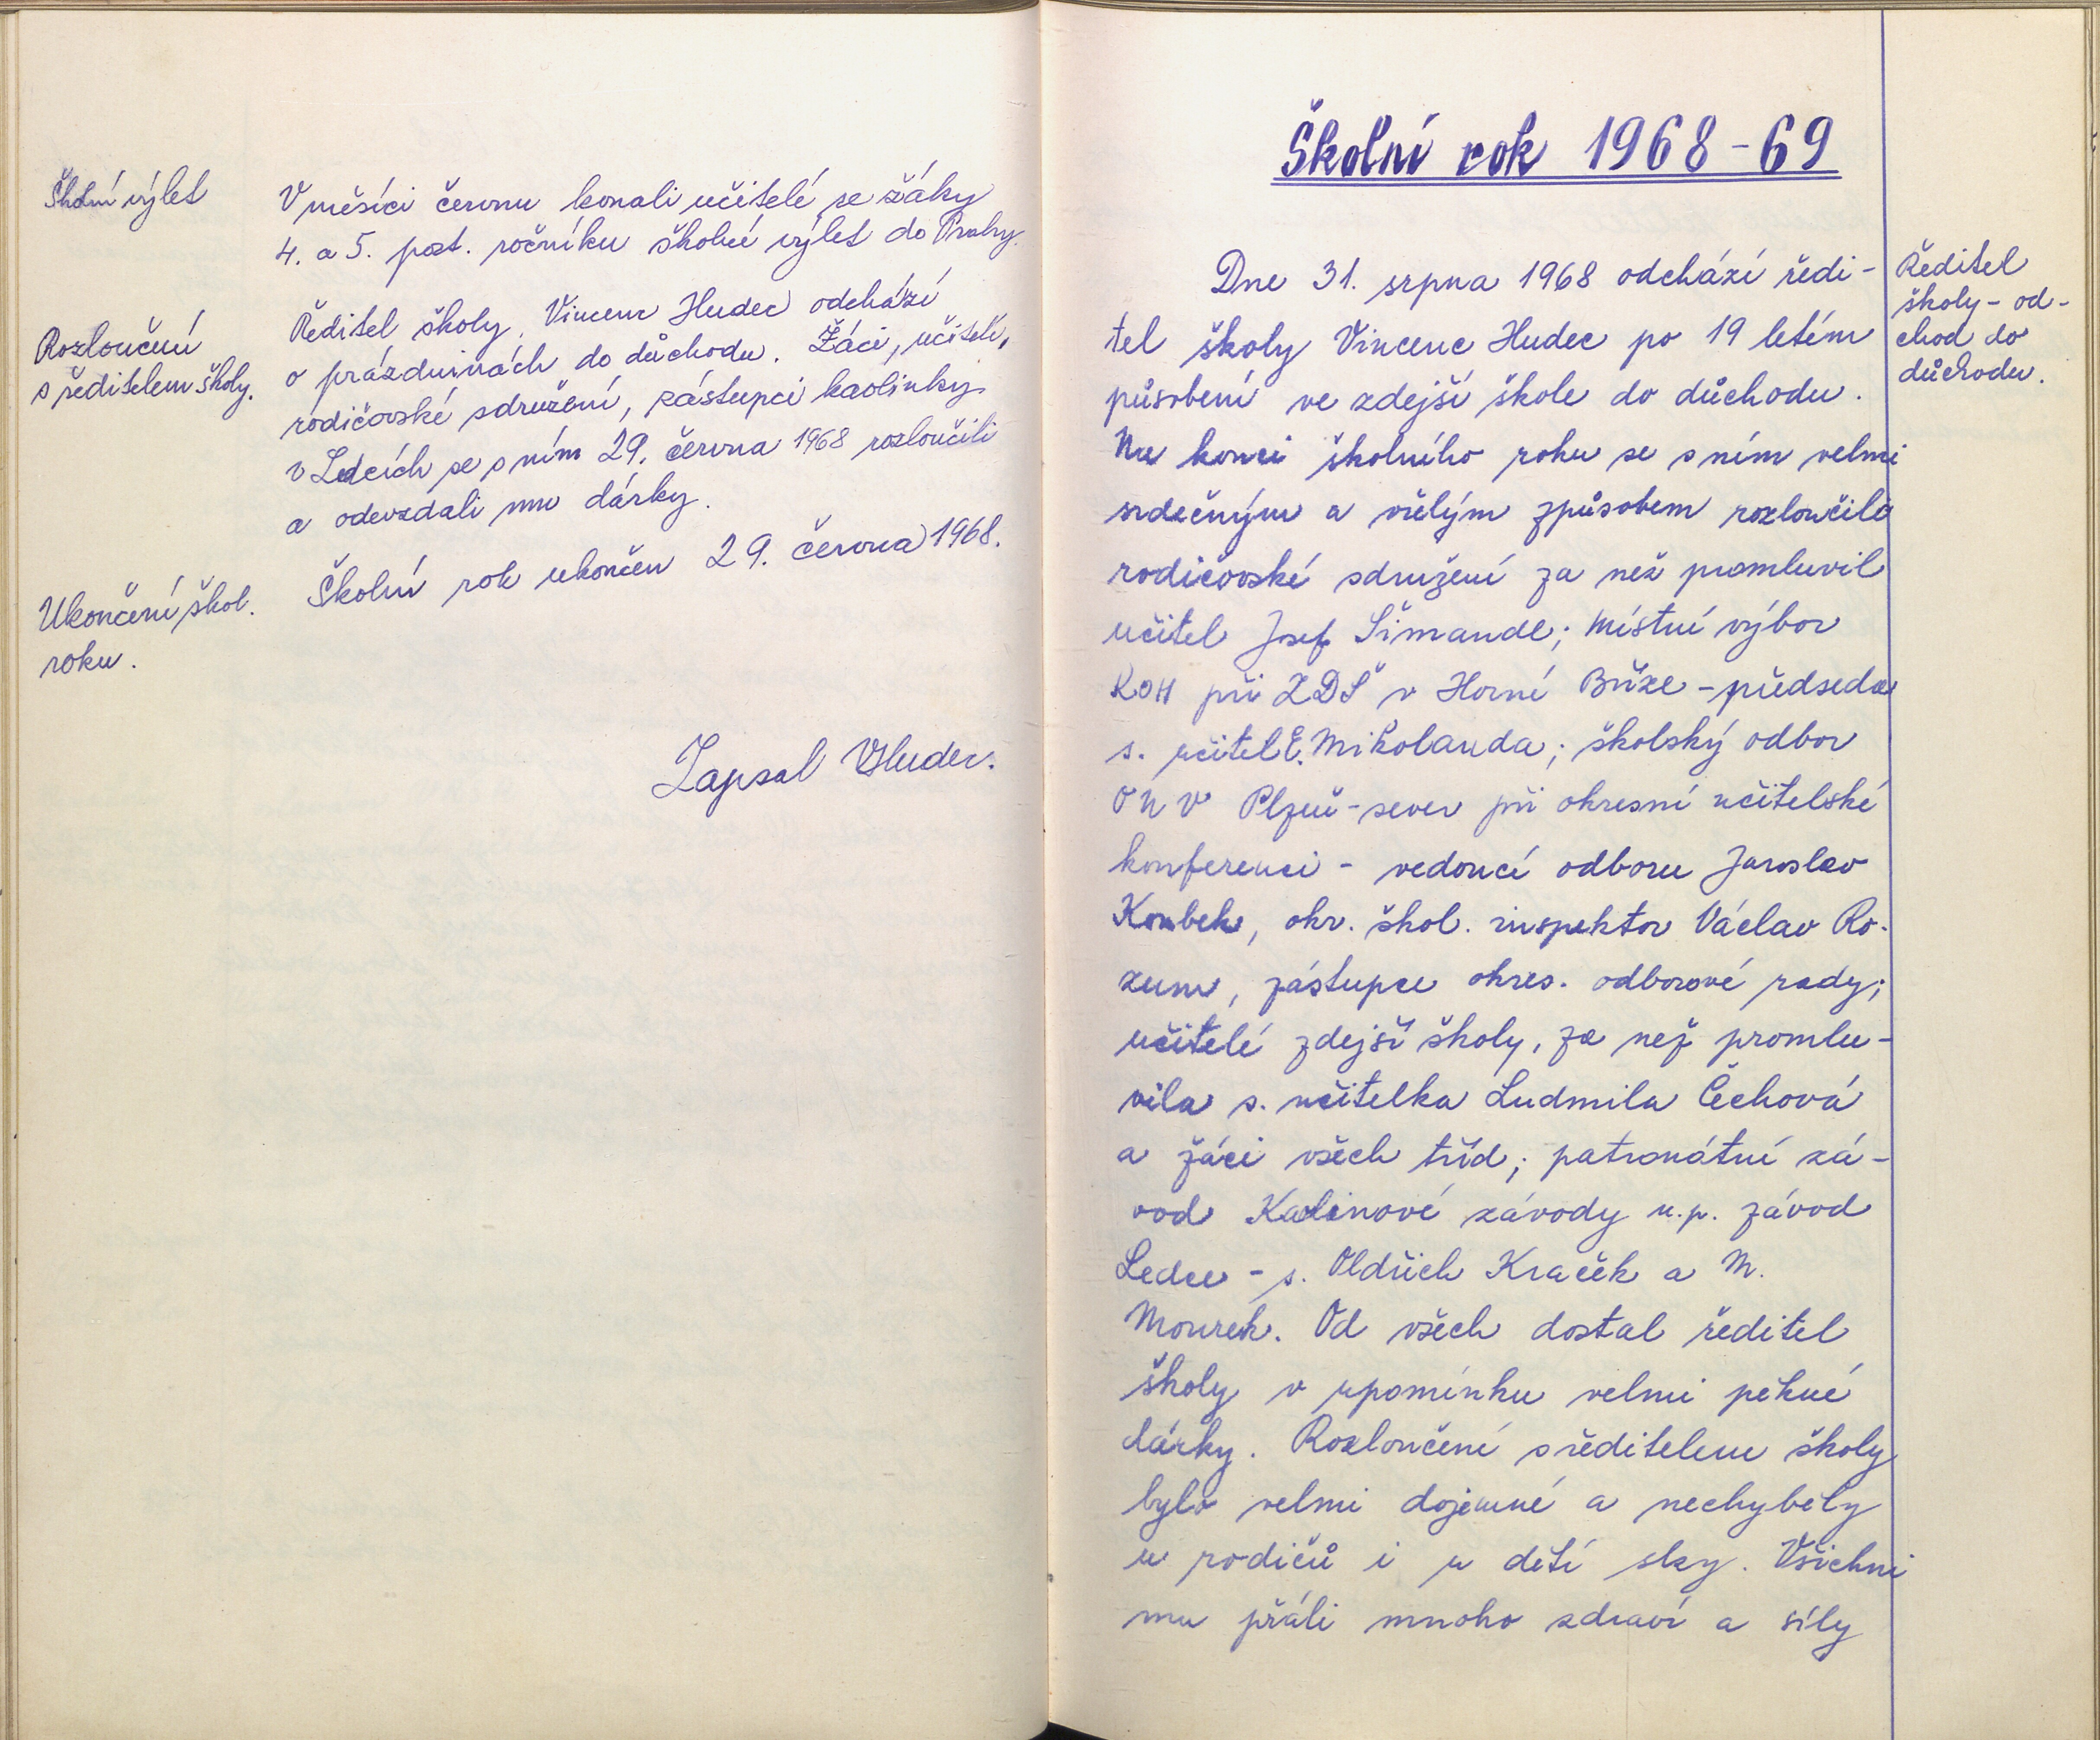 Školní výlet
V měsíci červnu konali učitelé se žáky
4. a 5. post. ročníku školní výlet do Prahy.
Rozloučení
s ředitelem školy.
Ředitel školy, Vincenc Hudec odchází
o prázdninách do důchodu. Žáci, učitelé,
rodičovské sdružení, zástupci kaolinky
v Ledcích se s ním 29. června 1968 rozloučili
a odevzdali mu dárky.
Ukončení škol.
roku.
Školní rok ukončen 29. června 1968.
Zapsal VHudec.
Školní rok 1968-69
Dne 31. srpna 1968 odchází ředi-
tel školy Vincenc Hudec po 19 letém
působení ve zdejší škole do důchodu.
Na konci školního roku se s ním velmi
srdečným a vřelým způsobem rozloučili
rodičovské sdružení za něž promluvil
učitel Josef Šimandl; místní výbor
ROH při ZDŠ v Horní Bříze - předseda
s. učitel E. Mikolanda; školský odbor
ONV Plzeň-sever při okresní učitelské
konferenci - vedoucí odboru Jaroslav
Koubek, okr. škol. inspektor Václav Ro-
zum, zástupce okres. odborové rady;
učitelé zdejší školy, za než promlu-
vila s. učitelka Ludmila Čechová
a žáci všech tříd; patronátní zá-
vod Kaolinové závody n.p. závod
Ledce - s. Oldřich Kraček a M.
Mourek. Od všech dostal ředitel
školy v upomínku velmi pěkné
dárky. Rozloučení s ředitelem školy
bylo velmi dojemné a nechyběly
u rodičů i u dětí slzy. Všichni
mu přáli mnoho zdraví a síly
Ředitel
školy - od-
chod do
důchodu.